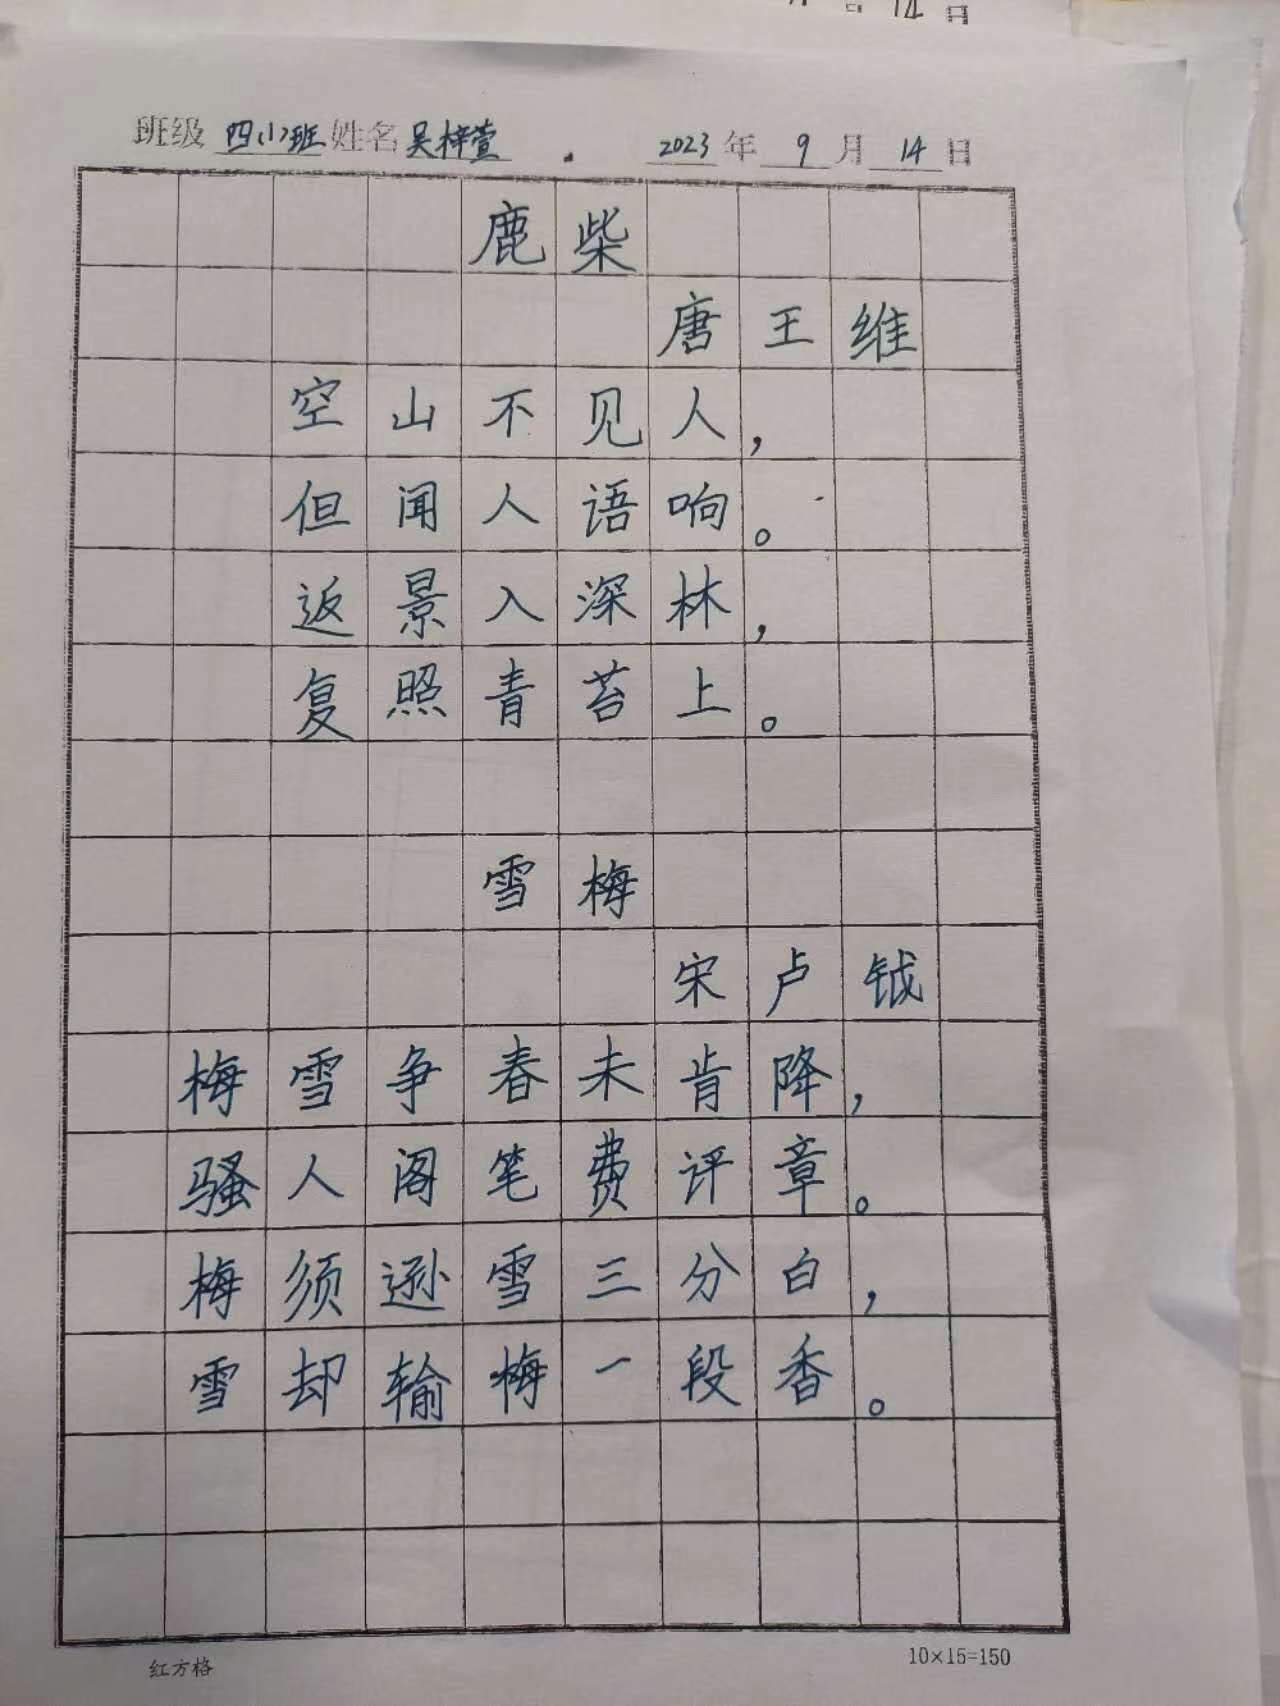 班级 四(1)班 姓名 吴梓萱 2023 年 9 月 14 日
鹿柴
唐王维
空山不见人，
但闻人语响。
返景入深林，
复照青苔上。
雪梅
宋卢钺
梅雪争春未肯降，
骚人阁笔费评章。
梅须逊雪三分白，
雪却输梅一段香。
红方格 10×15=150